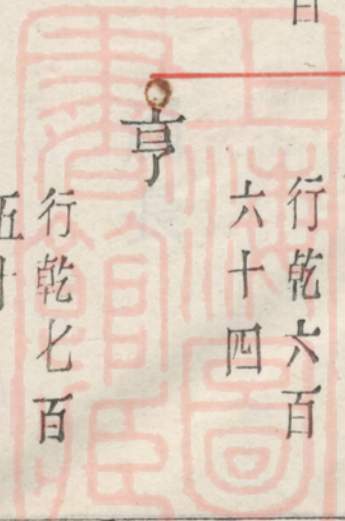 行乾六百
六十四
亨
行乾七百
五十